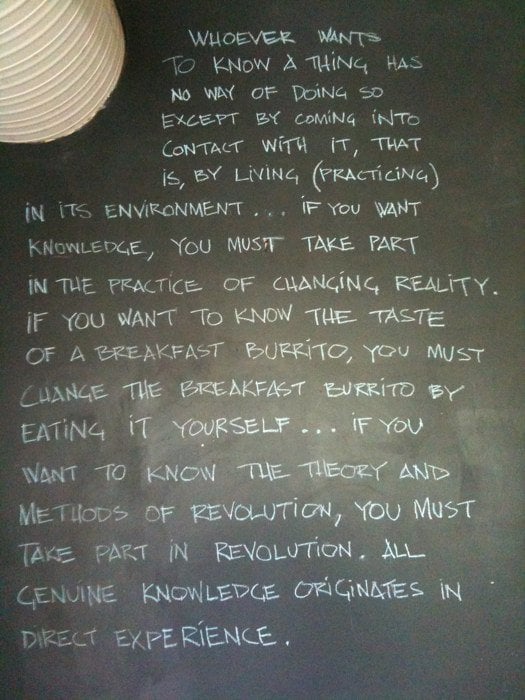 WHOEVER WANTS
TO KNOW A THING HAS
NO WAY OF DOING SO
EXCEPT BY COMING INTO
CONTACT WITH IT, THAT
IS, BY LIVING (PRACTICING)
IN ITS ENVIRONMENT... IF YOU WANT
KNOWLEDGE, YOU MUST TAKE PART
IN THE PRACTICE OF CHANGING REALITY.
IF YOU WANT TO KNOW THE TASTE
OF A BREAKFAST BURRITO, YOU MUST
CHANGE THE BREAKFAST BURRITO BY
EATING IT YOURSELF... IF YOU
WANT TO KNOW THE THEORY AND
METHODS OF REVOLUTION, YOU MUST
TAKE PART IN REVOLUTION. ALL
GENUINE KNOWLEDGE ORIGINATES IN
DIRECT EXPERIENCE.